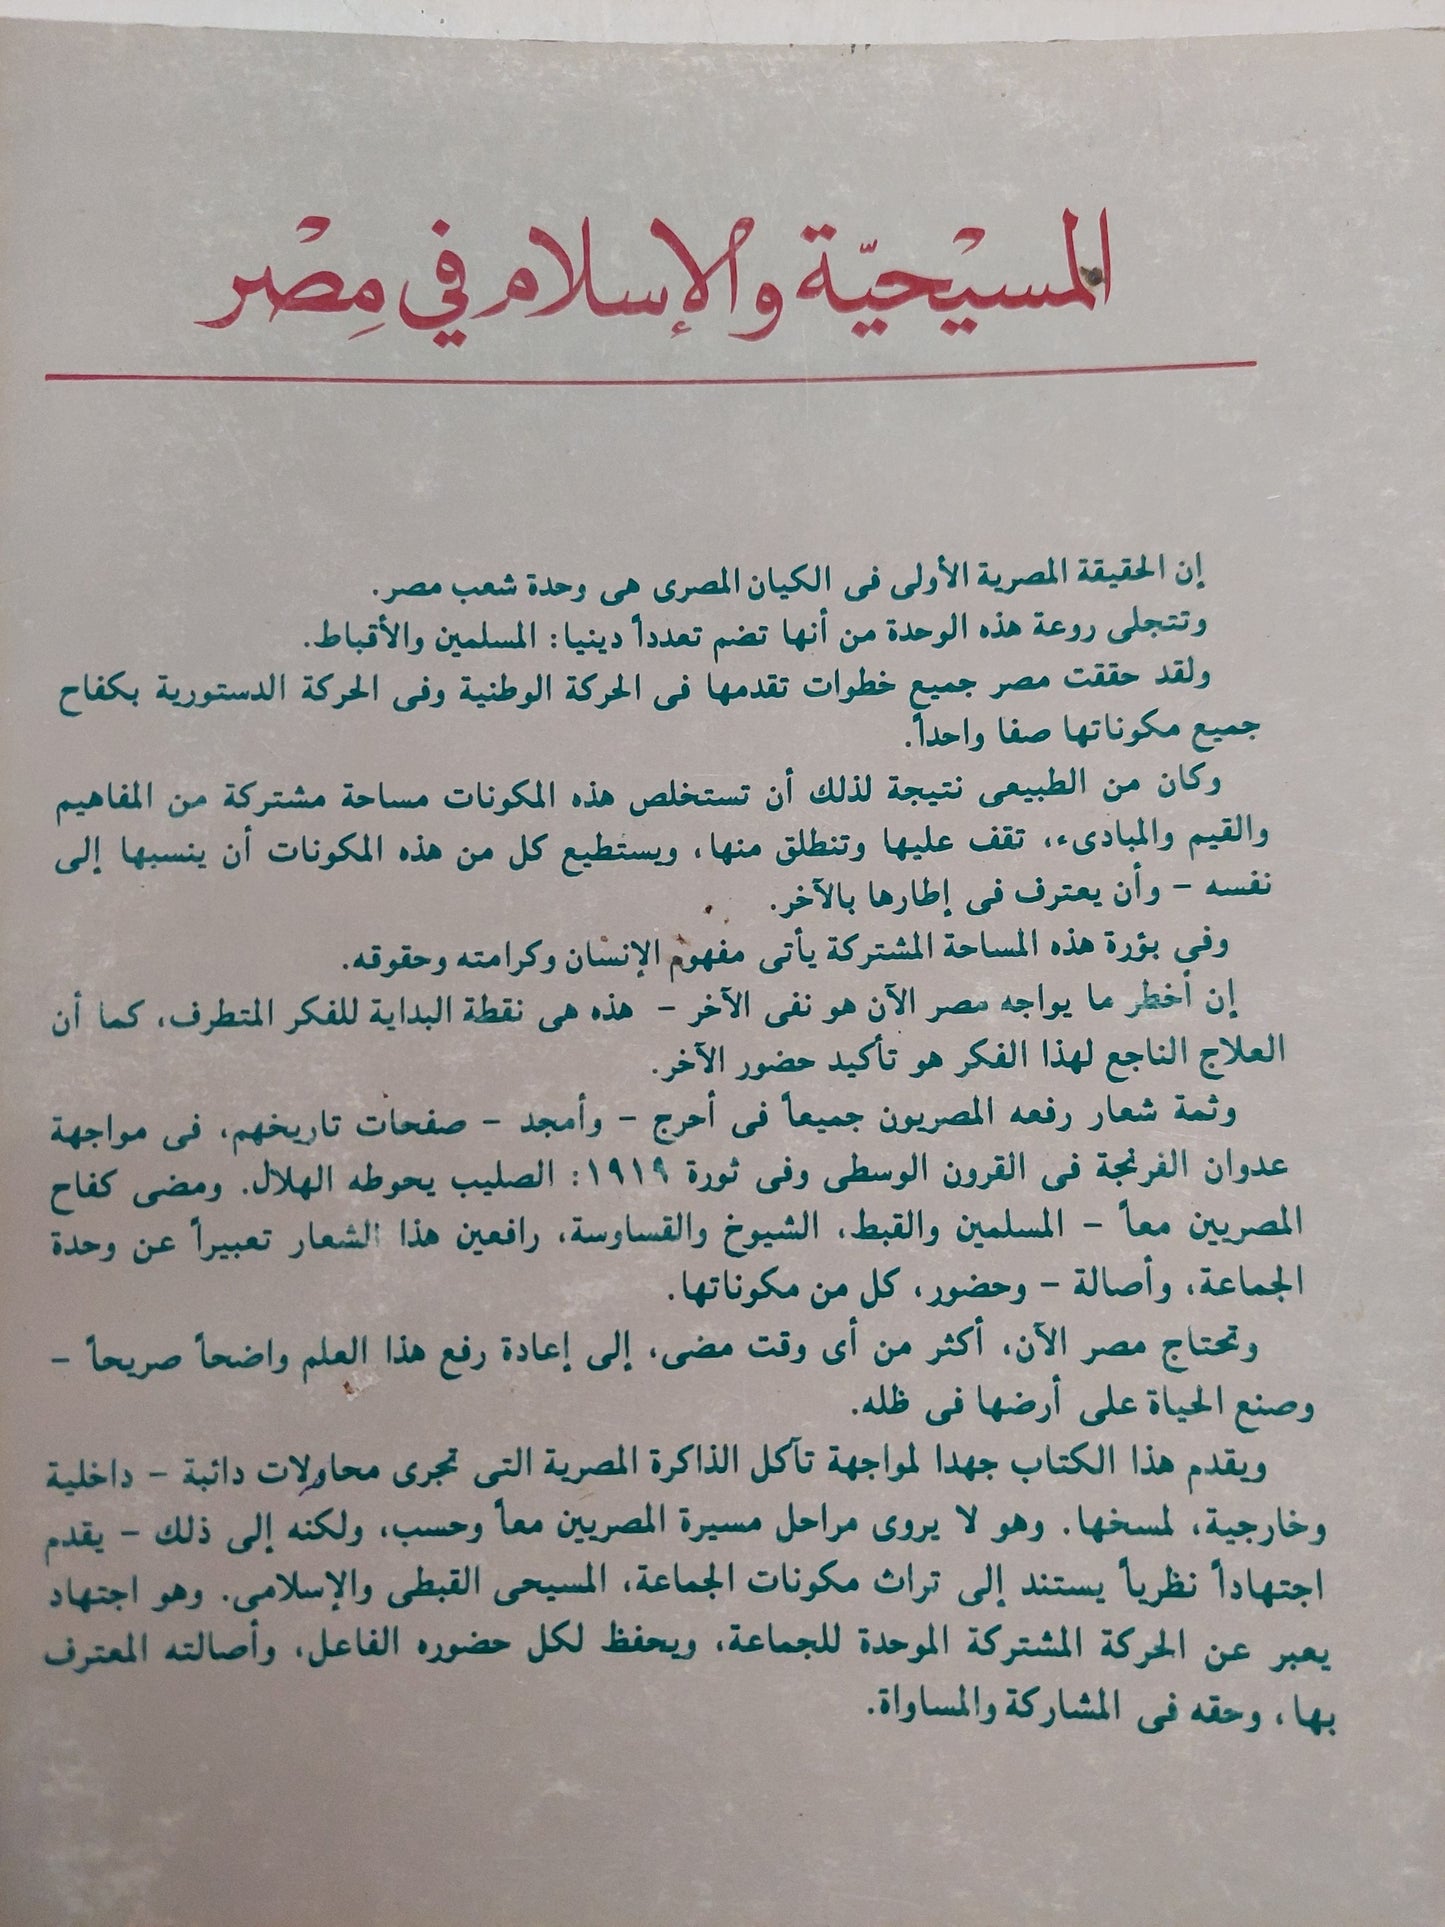 المسيحيّة والإسلام في مِصْر
إن الحقيقة المصرية الأولى فى الكيان المصرى هى وحدة شعب مصر.
وتتجلى روعة هذه الوحدة من أنها تضم تعدداً دينيا: المسلمين والأقباط.
ولقد حققت مصر جميع خطوات تقدمها فى الحركة الوطنية وفى الحركة الدستورية بكفاح
جميع مكوناتها صفا واحداً.
وكان من الطبيعى نتيجة لذلك أن تستخلص هذه المكونات مساحة مشتركة من المفاهيم
والقيم والمبادىء، تقف عليها وتنطلق منها، ويستطيع كل من هذه المكونات أن ينسبها إلى
نفسه - وأن يعترف فى إطارها بالآخر.
وفى بؤرة هذه المساحة المشتركة يأتى مفهوم الإنسان وكرامته وحقوقه.
إن أخطر ما يواجه مصر الآن هو نفى الآخر - هذه هى نقطة البداية للفكر المتطرف، كما أن
العلاج الناجع لهذا الفكر هو تأكيد حضور الآخر.
وثمة شعار رفعه المصريون جميعاً فى أحرج - وأمجد - صفحات تاريخهم، فى مواجهة
عدوان الفرنجة فى القرون الوسطى وفى ثورة ١٩١٩: الصليب يحوطه الهلال. ومضى كفاح
المصريين معاً - المسلمين والقبط، الشيوخ والقساوسة، رافعين هذا الشعار تعبيراً عن وحدة
الجماعة، وأصالة - وحضور، كل من مكوناتها.
وتحتاج مصر الآن، أكثر من أى وقت مضى، إلى إعادة رفع هذا العلم واضحاً صريحاً -
وصنع الحياة على أرضها فى ظله.
ويقدم هذا الكتاب جهدا لمواجهة تآكل الذاكرة المصرية التى تجرى محاولات دائبة - داخلية
وخارجية، لمسخها. وهو لا يروى مراحل مسيرة المصريين معاً وحسب، ولكنه إلى ذلك - يقدم
اجتهاداً نظرياً يستند إلى تراث مكونات الجماعة، المسيحى القبطى والإسلامى. وهو اجتهاد
يعبر عن الحركة المشتركة الموحدة للجماعة، ويحفظ لكل حضوره الفاعل، وأصالته المعترف
بها، وحقه فى المشاركة والمساواة.